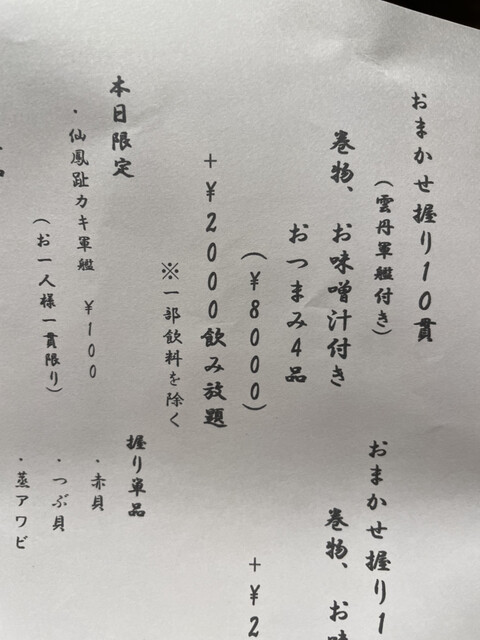 おまかせ握り10貫
(雲丹軍艦付き)
巻物、お味噌汁付き
おつまみ4品
(¥8000)
+¥2000飲み放題
※一部飲料を除く
本日限定
・仙鳳趾カキ軍艦 ¥100
(お一人様一貫限り)
おまかせ握り1
巻物、お味
+¥2
握り単品
・赤貝
・つぶ貝
・蒸アワビ